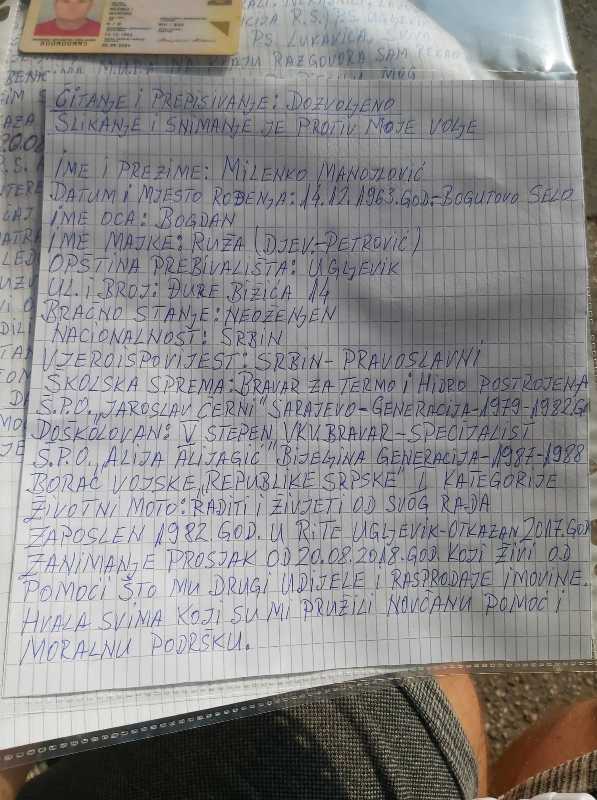 RAZGOVORA SAM
P.S. LUKAVICA,
ČITANJE I PREPISIVANJE: DOZVOLJENO
SLIKANJE I SNIMANJE JE PROTIV MOJE VOLJE
IME I PREZIME: MILENKO MANOJLOVIĆ
DATUM I MJESTO ROĐENJA: 14.12.1963.GOD.-BOGUTOVO SELO
IME OCA: BOGDAN
IME MAJKE: RUŽA (DJEV.-PETROVIĆ)
OPŠTINA PREBIVALIŠTA: UGLJEVIK
UL. I BROJ: ĐURE BIŽIĆA 14
BRAČNO STANJE: NEOŽENJEN
NACIONALNOST: SRBIN
VJEROISPOVIJEST: SRBIN-PRAVOSLAVNI
ŠKOLSKA SPREMA: BRAVAR ZA TERMO I HIDRO POSTROJENJA
Š.P.O. "JAROSLAV ČERNI" SARAJEVO-GENERACIJA-1979-1982.G
DOŠKOLOVAN: V STEPEN, VKV. BRAVAR-SPECIJALIST
Š.P.O. "ALIJA ALIJAGIĆ" BIJELJINA GENERACIJA-1987-1988
BORAC VOJSKE "REPUBLIKE SRPSKE" I KATEGORIJE
ŽIVOTNI MOTO: RADITI I ŽIVJETI OD SVOG RADA
ZAPOSLEN 1982.GOD. U RITE UGLJEVIK-OTKAZAN 2017.GOD
ZANIMANJE PROSJAK OD 20.08.2018.GOD. KOJI ŽIVI OD
POMOĆI ŠTO MU DRUGI UDIJELE I RASPRODAJE IMOVINE.
HVALA SVIMA KOJI SU MI PRUŽILI NOVČANU POMOĆ I
MORALNU PODRŠKU.